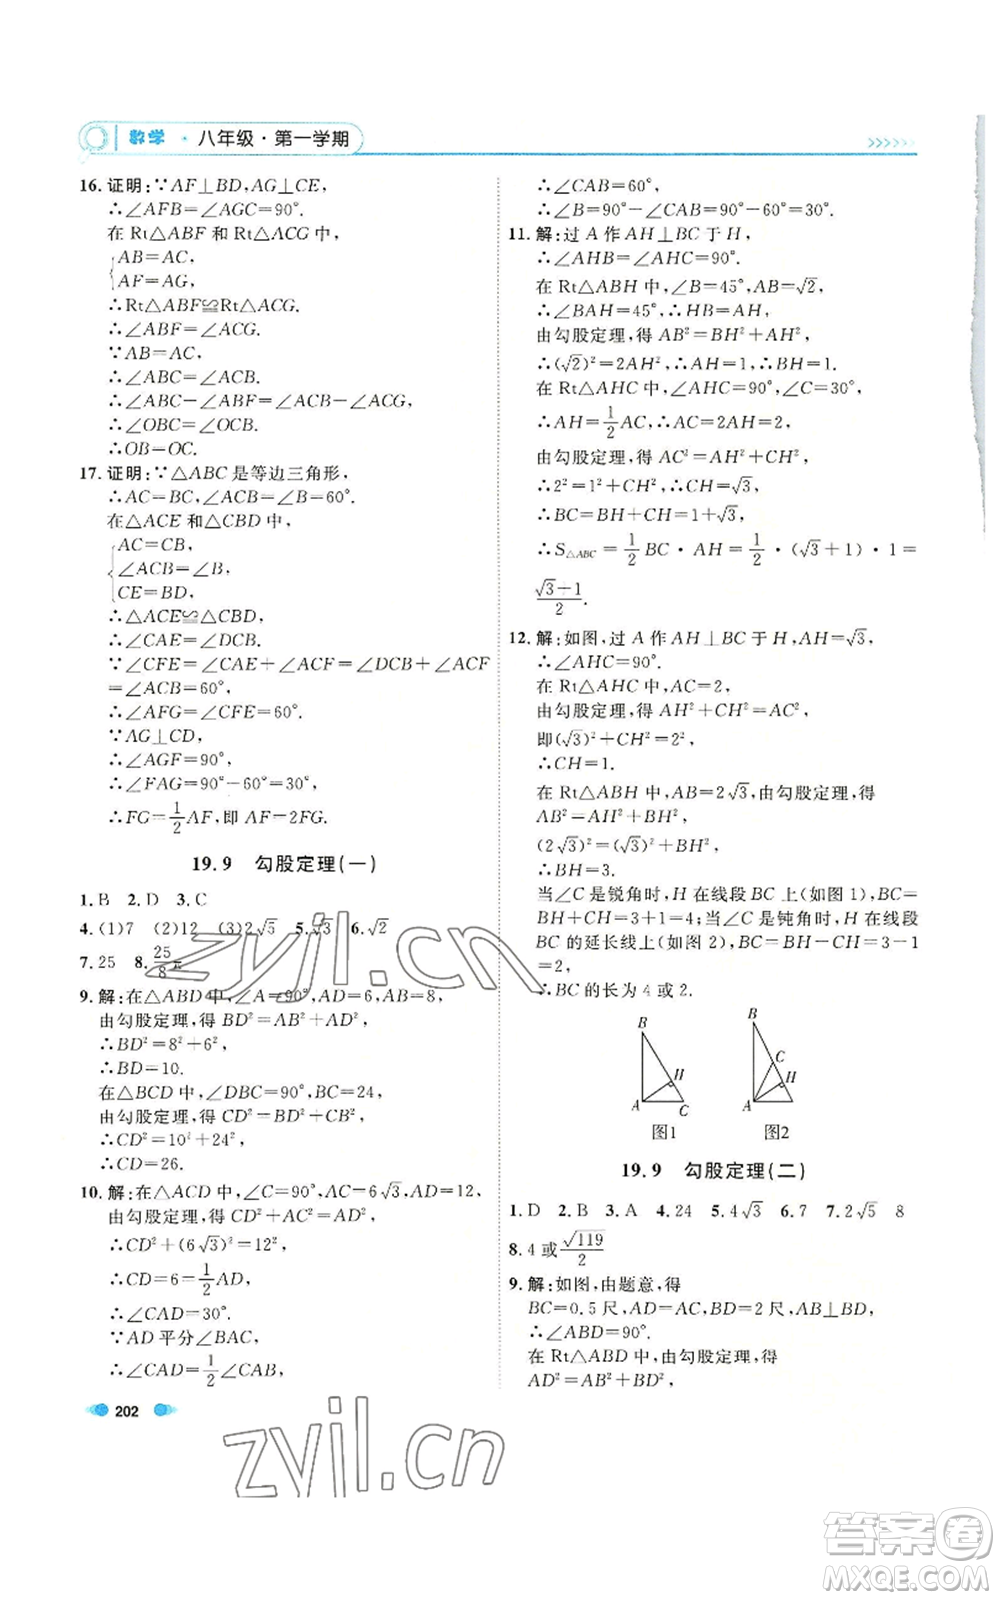 数学 · 八年级 · 第一学期
16. 证明:∵AF⊥BD,AG⊥CE,
∴∠AFB=∠AGC=90°.
在 Rt△ABF 和 Rt△ACG 中,
AB=AC,
AF=AG,
∴Rt△ABF≌Rt△ACG.
∴∠ABF=∠ACG.
∵AB=AC,
∴∠ABC=∠ACB.
∴∠ABC−∠ABF=∠ACB−∠ACG,
∴∠OBC=∠OCB.
∴OB=OC.
17. 证明:∵△ABC 是等边三角形,
∴AC=BC,∠ACB=∠B=60°.
在△ACE 和△CBD 中,
AC=CB,
∠ACB=∠B,
CE=BD,
∴△ACE≌△CBD.
∴∠CAE=∠DCB.
∵∠CFE=∠CAE+∠ACF=∠DCB+∠ACF
=∠ACB=60°,
∴∠AFG=∠CFE=60°.
∵AG⊥CD,
∴∠AGF=90°,
∴∠FAG=90°−60°=30°,
∴FG=1/2AF,即 AF=2FG.
19.9 勾股定理(一)
1. B 2. D 3. C
4. (1)7 (2)12 (3)2√5 5. √3 6. √2
7. 25 8. 25/8π
9. 解:在△ABD 中,∠A=90°,AD=6,AB=8,
由勾股定理,得 BD²=AB²+AD²,
∴BD²=8²+6²,
∴BD=10.
在△BCD 中,∠DBC=90°,BC=24,
由勾股定理,得 CD²=BD²+CB²,
∴CD²=10²+24²,
∴CD=26.
10. 解:在△ACD 中,∠C=90°,AC=6√3,AD=12,
由勾股定理,得 CD²+AC²=AD²,
∴CD²+(6√3)²=12²,
∴CD=6=1/2AD,
∴∠CAD=30°.
∵AD 平分∠BAC,
∴∠CAD=1/2∠CAB,
202
∴∠CAB=60°,
∴∠B=90°−∠CAB=90°−60°=30°.
11. 解:过 A 作 AH⊥BC 于 H,
∴∠AHB=∠AHC=90°.
在 Rt△ABH 中,∠B=45°,AB=√2,
∴∠BAH=45°,∴HB=AH,
由勾股定理,得 AB²=BH²+AH²,
∴(√2)²=2AH²,∴AH=1,∴BH=1.
在 Rt△AHC 中,∠AHC=90°,∠C=30°,
∴AH=1/2AC,∴AC=2AH=2,
由勾股定理,得 AC²=AH²+CH²,
∴2²=1²+CH²,∴CH=√3,
∴BC=BH+CH=1+√3,
∴S△ABC=1/2BC·AH=1/2·(√3+1)·1=
√3+1/2.
12. 解:如图,过 A 作 AH⊥BC 于 H,AH=√3,
∴∠AHC=90°.
在 Rt△AHC 中,AC=2,
由勾股定理,得 AH²+CH²=AC²,
即(√3)²+CH²=2²,
∴CH=1.
在 Rt△ABH 中,AB=2√3,由勾股定理,得
AB²=AH²+BH²,
(2√3)²=(√3)²+BH²,
∴BH=3.
当∠C是锐角时,H 在线段 BC 上(如图 1),
BH+CH=3+1=4;当∠C是钝角时,H 在线段
BC 的延长线上(如图 2),BC=BH−CH=3−1
=2,
∴BC 的长为 4 或 2.
B H A C
B C H A
图1 图2
19.9 勾股定理(二)
1. D 2. B 3. A 4. 24 5. 4√3 6. 7 7. 2√5 8
8. 4 或√119/2
9. 解:如图,由题意,得
BC=0.5 尺,AD=AC,BD=2 尺,AB⊥BD,
∴∠ABD=90°.
在 Rt△ABD 中,由勾股定理,得
AD²=AB²+BD²,
zyjl.cn
zyjl.cn
答案卷
MXQE.COM